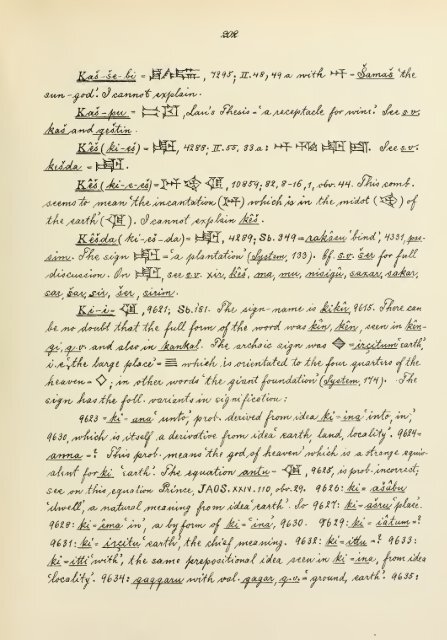 202
Kaš-še-bi = 7295; II. 48, 49 a with = Šamaš 'the
sun-god.' I cannot explain.
Kaš-pu = Lau's Thesis = 'a receptacle for wine.' See s.v.
kaš and geštin.
Kêš (ki-eš) = 4288; II. 55, 33 a: See s.v.
kešda =
Kêš (ki-e-eš) = 10859; 82, 8-16, 1, obv. 44. This comb.
seems to mean 'the incantation ( ) which is in the midst ( ) of
the earth' ( ). I cannot explain kêš.
Kêšda (ki-eš-da) = 4289; Sb. 349 = rakâsu 'bind', 4331,
The sign = 'a plantation' (System, 133). Cf. s.v. šer for full
discussion. On see s.v. xir, kêš, ma, mu, misigû, saxar, sakar,
sar, šar, sir, šer, sirim.
Ki-i = 9621; Sb. 181. The sign-name is kikû, 9615. There can
be no doubt that the full form of the word was kin, ken, seen in kin-
gi, q.v. and also in kankal. The archaic sign was = irçitum 'earth,'
i.e., 'the large place' = which is orientated to the four quarters of the
heaven = ; in other words 'the giant foundation' (System, 174). The
sign has the foll. variants in signification:
9623 = ki = ana 'unto', prob. derived from idea ki = ina 'into, in,'
9630, which is itself a derivative from idea 'earth, land, locality'. 9624 =
anna = ? This prob. means the god of heaven which is a strange equiv-
alent for ki 'earth'. The equation antu - 9625, is prob. incorrect;
see on this equation Prince, JAOS. XXIV. 110, obv. 29. 9626: ki = ašâbu
'dwell', a natural meaning from idea 'earth'. So 9627: ki = ašru 'place.'
9628: ki = êma 'in', a by form of ki = 'ina', 9630. 9629: ki = = ?
9631: ki = irçitu 'earth', the chief meaning. 9632: ki = ittu = ? 9633:
ki = itti 'with', the same prepositional idea seen in ki = ina, from idea
'locality'. 9634: qaqqaru with val. gagar, q.v. = 'ground, earth.' 9635: